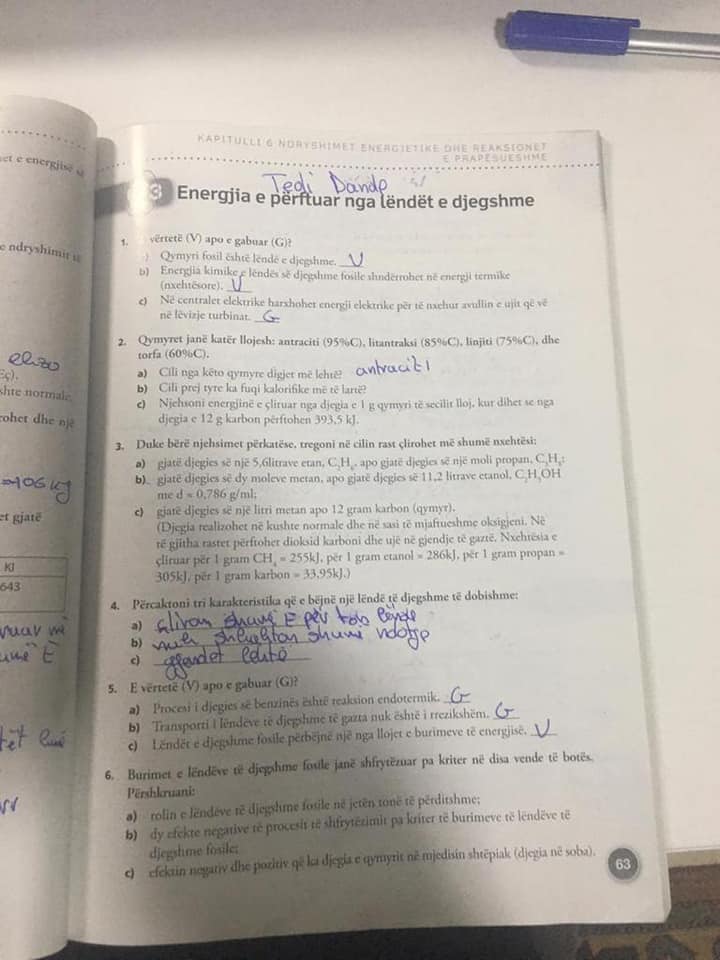 KAPITULLI 6 NDRYSHIMET ENERGJETIKE DHE REAKSIONET
E PRAPËSUESHME
Tedi Dande
3 Energjia e përftuar nga lëndët e djegshme
1. vërtetë (V) apo e gabuar (G)?
Qymyri fosil është lëndë e djegshme. V
b) Energjia kimike e lëndës së djegshme fosile shndërrohet në energji termike
(nxehtësore). V
c) Në centralet elektrike harxhohet energji elektrike për të nxehur avullin e ujit që vë
në lëvizje turbinat. G
2. Qymyret janë katër llojesh: antraciti (95%C), litantraksi (85%C), linjiti (75%C), dhe
torfa (60%C).
a) Cili nga këto qymyre digjet më lehtë? antraciti
b) Cili prej tyre ka fuqi kalorifike më të lartë?
c) Njehsoni energjinë e çliruar nga djegia e 1 g qymyri të secilit lloj, kur dihet se nga
djegia e 12 g karbon përftohen 393,5 kJ.
3. Duke bërë njehsimet përkatëse, tregoni në cilin rast çlirohet më shumë nxehtësi:
a) gjatë djegies së një 5,6litrave etan, C₂H₆, apo gjatë djegies së një moli propan, C₃H₈;
b). gjatë djegies së dy moleve metan, apo gjatë djegies së 11,2 litrave etanol, C₂H₅OH
me d = 0,786 g/ml;
c) gjatë djegies së një litri metan apo 12 gram karbon (qymyr).
(Djegia realizohet në kushte normale dhe në sasi të mjaftueshme oksigjeni. Në
të gjitha rastet përftohet dioksid karboni dhe ujë në gjendje të gaztë. Nxehtësia e
çliruar për 1 gram CH₄ = 255kJ, për 1 gram etanol = 286kJ, për 1 gram propan =
305kJ, për 1 gram karbon = 33,95kJ.)
4. Përcaktoni tri karakteristika që e bëjnë një lëndë të djegshme të dobishme:
a) çliron shumë E për lëndë
b) nuk shkakton shumë ndotje
c) gjendet lehtë
5. E vërtetë (V) apo e gabuar (G)?
a) Procesi i djegies së benzinës është reaksion endotermik. G
b) Transporti i lëndëve të djegshme të gazta nuk është i rrezikshëm. G
c) Lëndët e djegshme fosile përbëjnë një nga llojet e burimeve të energjisë. V
6. Burimet e lëndëve të djegshme fosile janë shfrytëzuar pa kriter në disa vende të botës.
Përshkruani:
a) rolin e lëndëve të djegshme fosile në jetën tonë të përditshme;
b) dy efekte negative të procesit të shfrytëzimit pa kriter të burimeve të lëndëve të
djegshme fosile;
c) efektin negativ dhe pozitiv që ka djegia e qymyrit në mjedisin shtëpiak (djegia në soba).
63
et e energjisë
e ndryshimit të
shte normale,
rohet dhe një
et gjatë
KJ
643